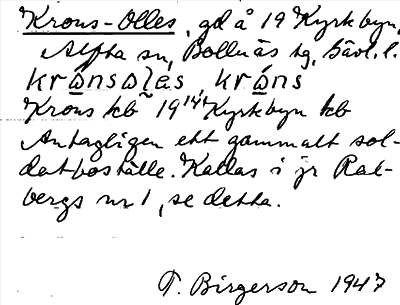 Krons-Olles, gd å 19 Kyrkbyn,
Alfta sn, Bollnäs tg, Gävl. l.
krånsolas, kråns
Krons kb 19 14/1 Kyrkbyn kb
Antagligen ett gammalt sol-
datboställe. Kallas i jr Rak-
bergs nr 1, se detta.
T. Birgerson 1947